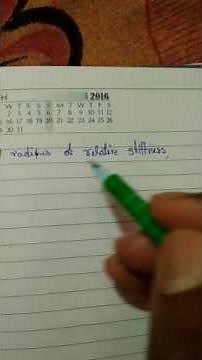 H 2016
W T F S S M T W T F S
2 3 4 5 6 7 8 9 10 11 12
16 17 18 19 20 21 22 23 24 25 26
30 31
radius of relative stiffness,